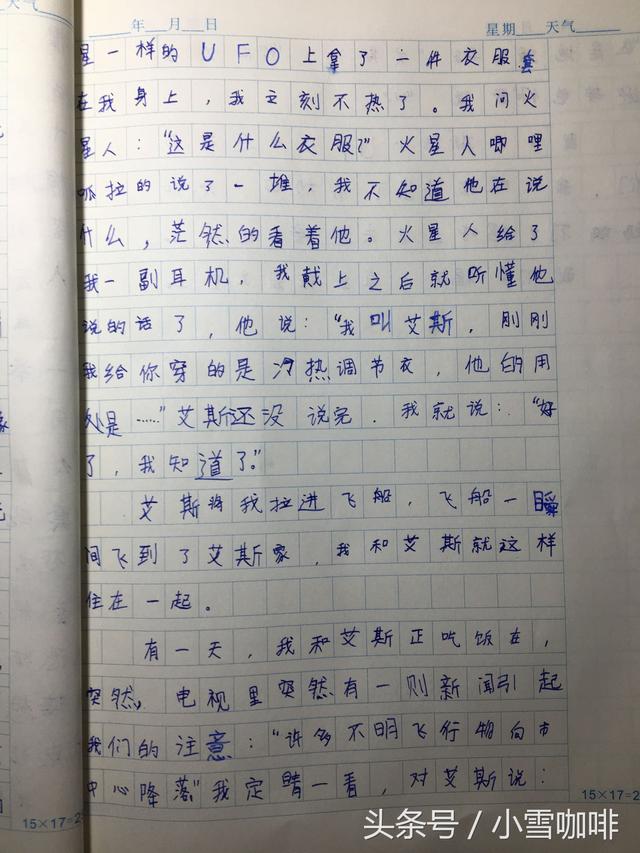 天气
年 月 日 星期 天气
星一样的UFO上拿了一件衣服套
在我身上，我立刻不热了。我问火
星人：“这是什么衣服？”火星人唧哩
呱拉的说了一堆，我不知道他在说
什么，茫然的看着他。火星人给了
我一副耳机，我戴上之后就听懂他
说的话了，他说：“我叫艾斯，刚刚
我给你穿的是冷热调节衣，他的用
处是……”艾斯还没说完，我就说：“好
了，我知道了。”
艾斯将我拉进飞船，飞船一瞬
间飞到了艾斯家，我和艾斯就这样
住在一起。
有一天，我和艾斯正吃饭在，
突然，电视里突然有一则新闻引起
我们的注意：“许多不明飞行物向市
中心降落”我定睛一看，对艾斯说：
15×17=2
15×17=2
头条号／小雪咖啡